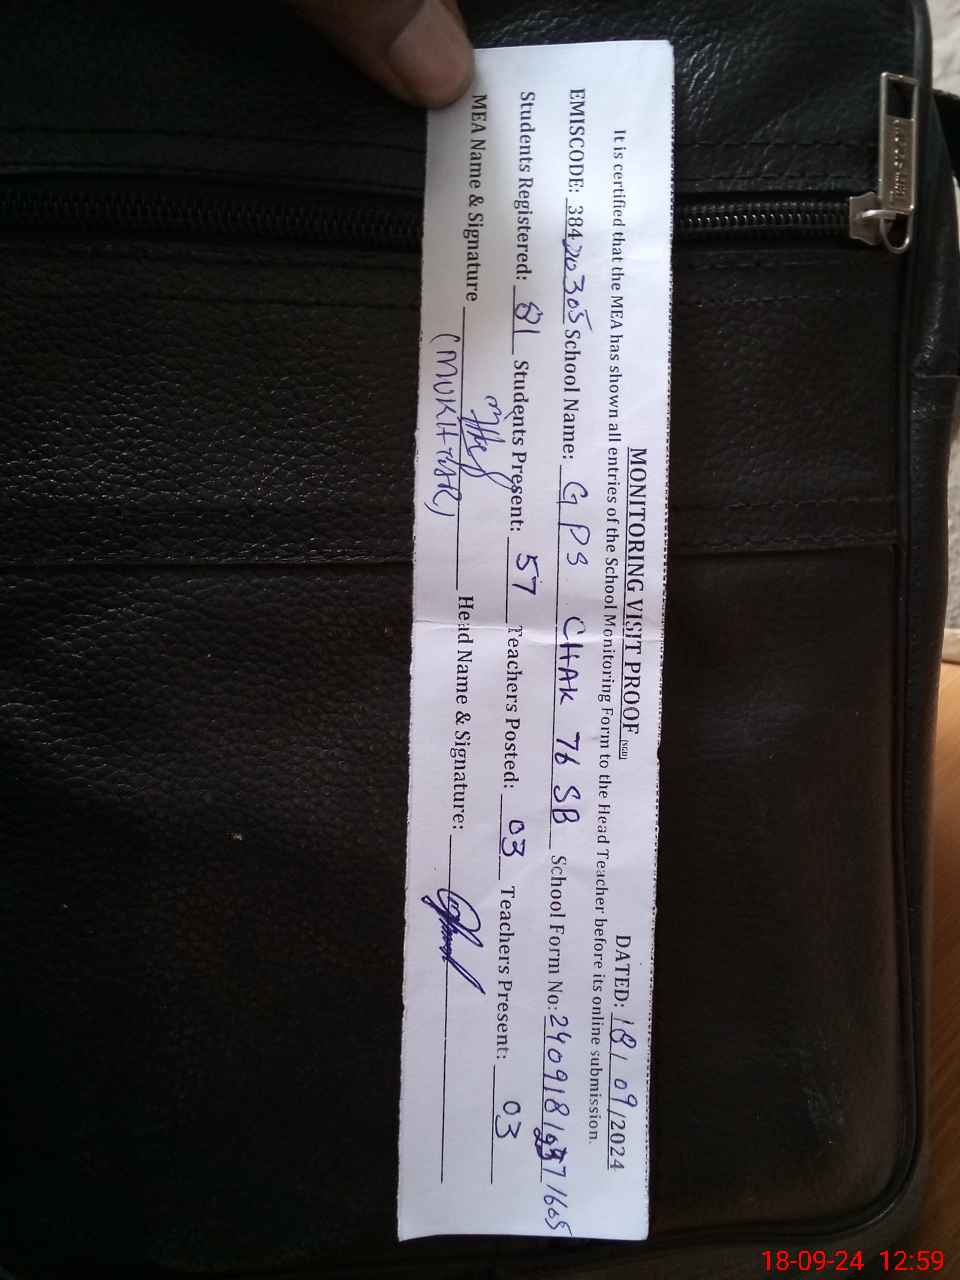 MONITORING VISIT PROOF (SGD) DATED: 18/09/2024
It is certified that the MEA has shown all entries of the School Monitoring Form to the Head Teacher before its online submission.
EMISCODE: 38420305 School Name: GPS CHAK 76 SB School Form No: 240918
Students Registered: 81 Students Present: 57 Teachers Posted: 03 Teachers Present: 03
MEA Name & Signature Head Name & Signature:
(MUKHTAR)
18-09-24 12:59